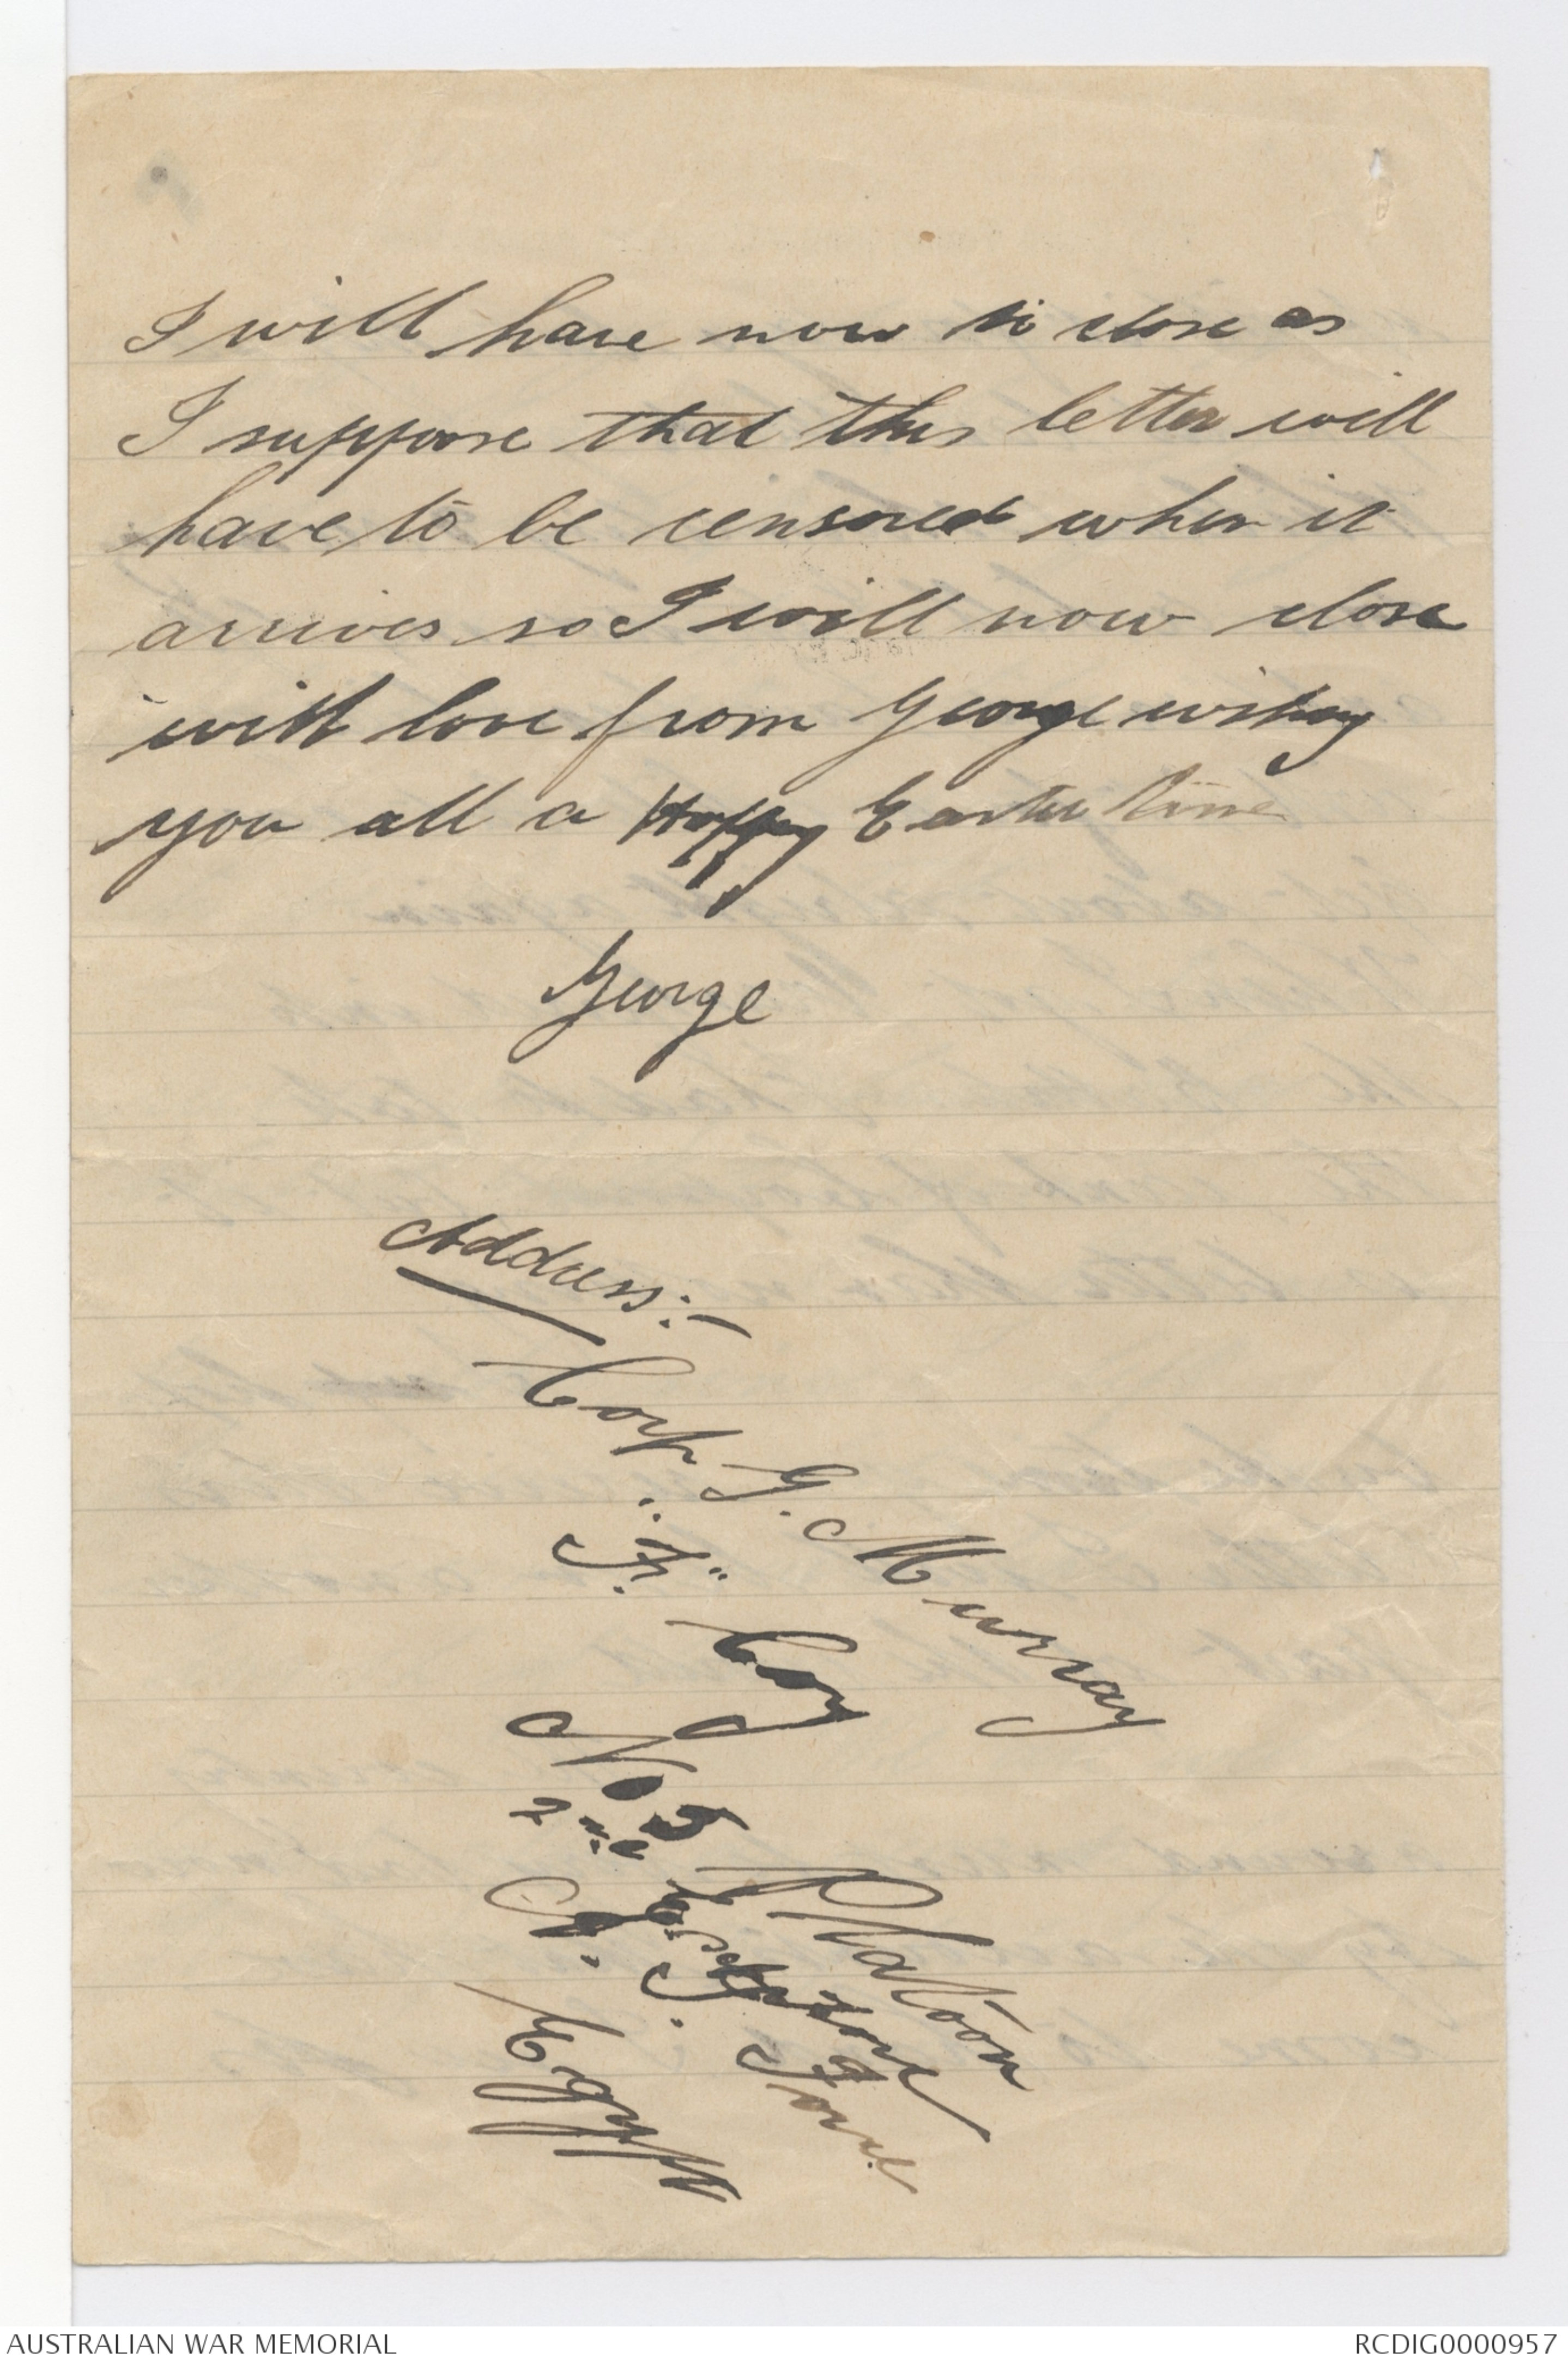 I will have now to close as
I suppose that this letter will
have to be censored when it
arrives so I will now close
with love from George wishing
you all a Happy Easter time
George
Address:-
Corp. G. Murray
"F" Coy
No 3 Platoon
2nd
A. I. Force
Egypt
AUSTRALIAN WAR MEMORIAL
RCDIG0000957